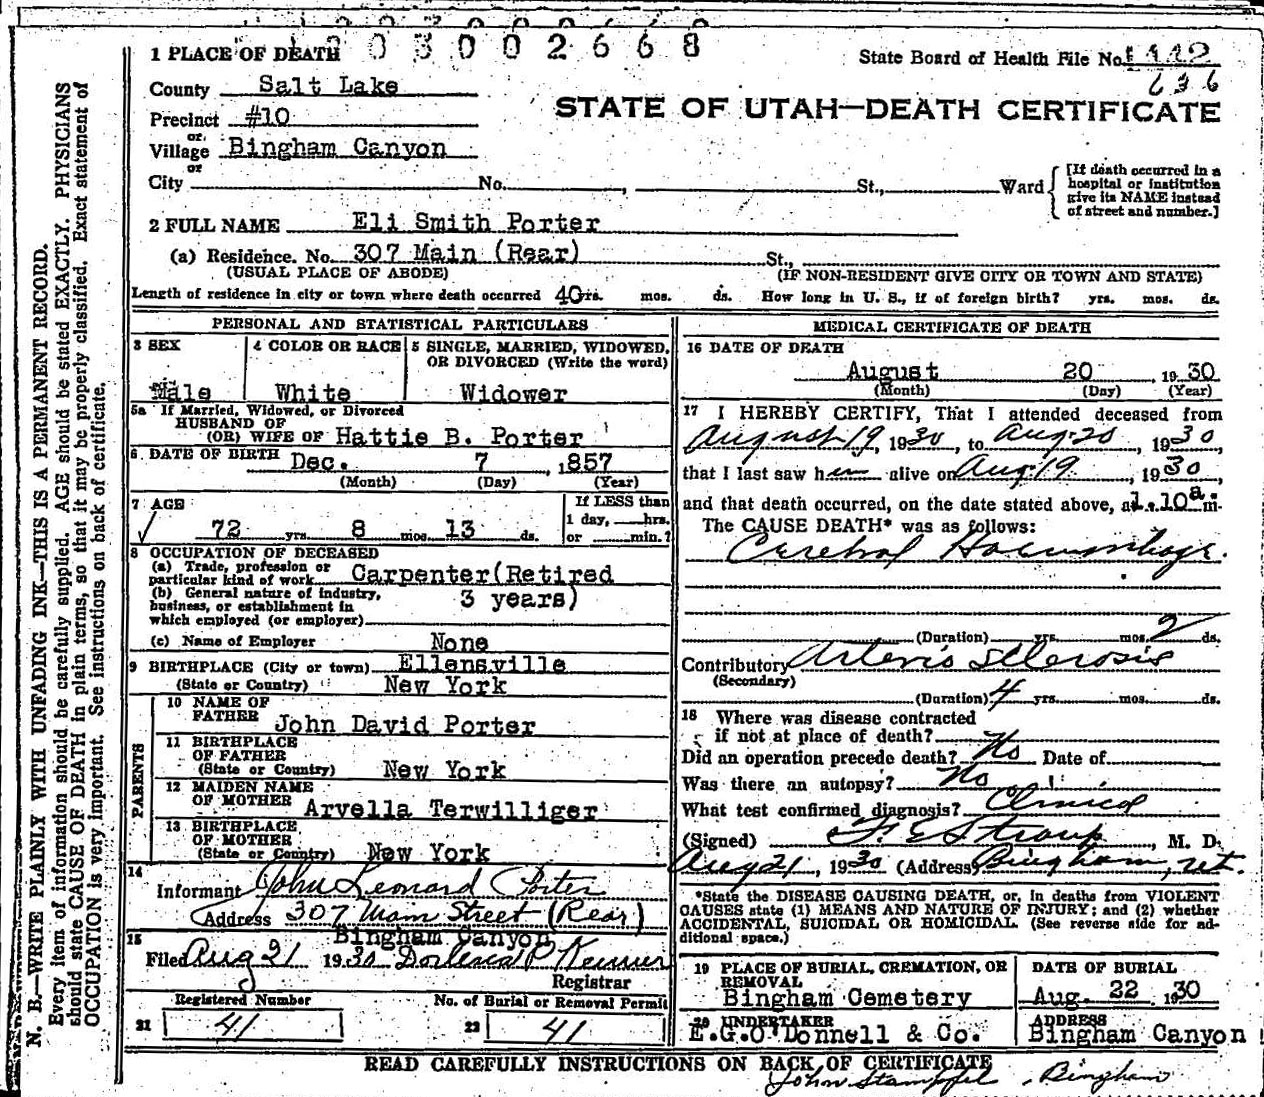 2 0 3 0 0 2 6 6 8
1 PLACE OF DEATH
State Board of Health File No.
636
County Salt Lake
STATE OF UTAH—DEATH CERTIFICATE
Precinct #10
or
Village Bingham Canyon
or
City No. , St., Ward
[If death occurred in a
hospital or institution
give its NAME instead
of street and number.]
2 FULL NAME Eli Smith Porter
(a) Residence. No. 307 Main (Rear) St.,
(USUAL PLACE OF ABODE) (IF NON-RESIDENT GIVE CITY OR TOWN AND STATE)
Length of residence in city or town where death occurred 40 yrs. mos. ds. How long in U. S., if of foreign birth? yrs. mos. ds.
PERSONAL AND STATISTICAL PARTICULARS
3 SEX 4 COLOR OR RACE 5 SINGLE, MARRIED, WIDOWED,
OR DIVORCED (Write the word)
Male White Widower
5a If Married, Widowed, or Divorced
HUSBAND OF
(OR) WIFE OF Hattie B. Porter
6 DATE OF BIRTH Dec. 7 , 1857
(Month) (Day) (Year)
7 AGE If LESS than
1 day, hrs.
72 yrs. 8 mos. 13 ds. or min.?
8 OCCUPATION OF DECEASED
(a) Trade, profession or
particular kind of work Carpenter(Retired
(b) General nature of industry,
business, or establishment in 3 years)
which employed (or employer)
(c) Name of Employer None
9 BIRTHPLACE (City or town) Ellensville
(State or Country) New York
PARENTS
10 NAME OF
FATHER John David Porter
11 BIRTHPLACE
OF FATHER
(State or Country) New York
12 MAIDEN NAME
OF MOTHER Arvella Terwilliger
13 BIRTHPLACE
OF MOTHER
(State or Country) New York
14
Informant John Leonard Porter
Address 307 Main Street (Rear)
Bingham Canyon
15
Filed Aug 21 1930
Registrar
Registered Number No. of Burial or Removal Permit
21 41 22 41
MEDICAL CERTIFICATE OF DEATH
16 DATE OF DEATH
August 20 , 1930
(Month) (Day) (Year)
17 I HEREBY CERTIFY, That I attended deceased from
August 19, 1930, to Aug 20, 1930
that I last saw him alive on Aug 19, 1930
and that death occurred, on the date stated above, at 1.10 a m.
The CAUSE DEATH* was as follows:
Cerebral Haemorrhage.
(Duration) yrs. mos. 2 ds.
Contributory Arterio Sclerosis
(Secondary)
(Duration) 4 yrs. mos. ds.
18 Where was disease contracted
if not at place of death?
Did an operation precede death? No Date of
Was there an autopsy? No
What test confirmed diagnosis? Clinical
(Signed) F. E. Straup, M. D.
Aug 21, 1930 (Address) Bingham, Ut.
*State the DISEASE CAUSING DEATH, or, in deaths from VIOLENT
CAUSES state (1) MEANS AND NATURE OF INJURY; and (2) whether
ACCIDENTAL, SUICIDAL OR HOMICIDAL. (See reverse side for ad-
ditional space.)
19 PLACE OF BURIAL, CREMATION, OR
REMOVAL
Bingham Cemetery
DATE OF BURIAL
Aug. 22 1930
20 UNDERTAKER
E.G.O'Donnell & Co.
ADDRESS
Bingham Canyon
READ CAREFULLY INSTRUCTIONS ON BACK OF CERTIFICATE
John Stampfel, Bingham
N. B.—WRITE PLAINLY WITH UNFADING INK—THIS IS A PERMANENT RECORD.
Every item of information should be carefully supplied. AGE should be stated EXACTLY. PHYSICIANS
should state CAUSE OF DEATH in plain terms, so that it may be properly classified. Exact statement of
OCCUPATION is very important. See instructions on back of certificate.